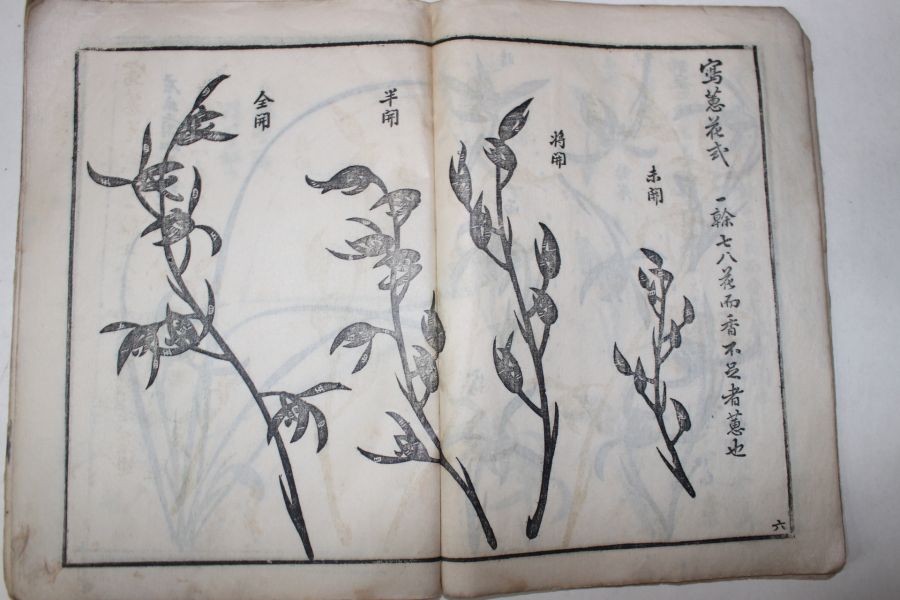 寫蕙花式
一幹七八花而香不足者蕙也
未開
将開
半開
全開
六